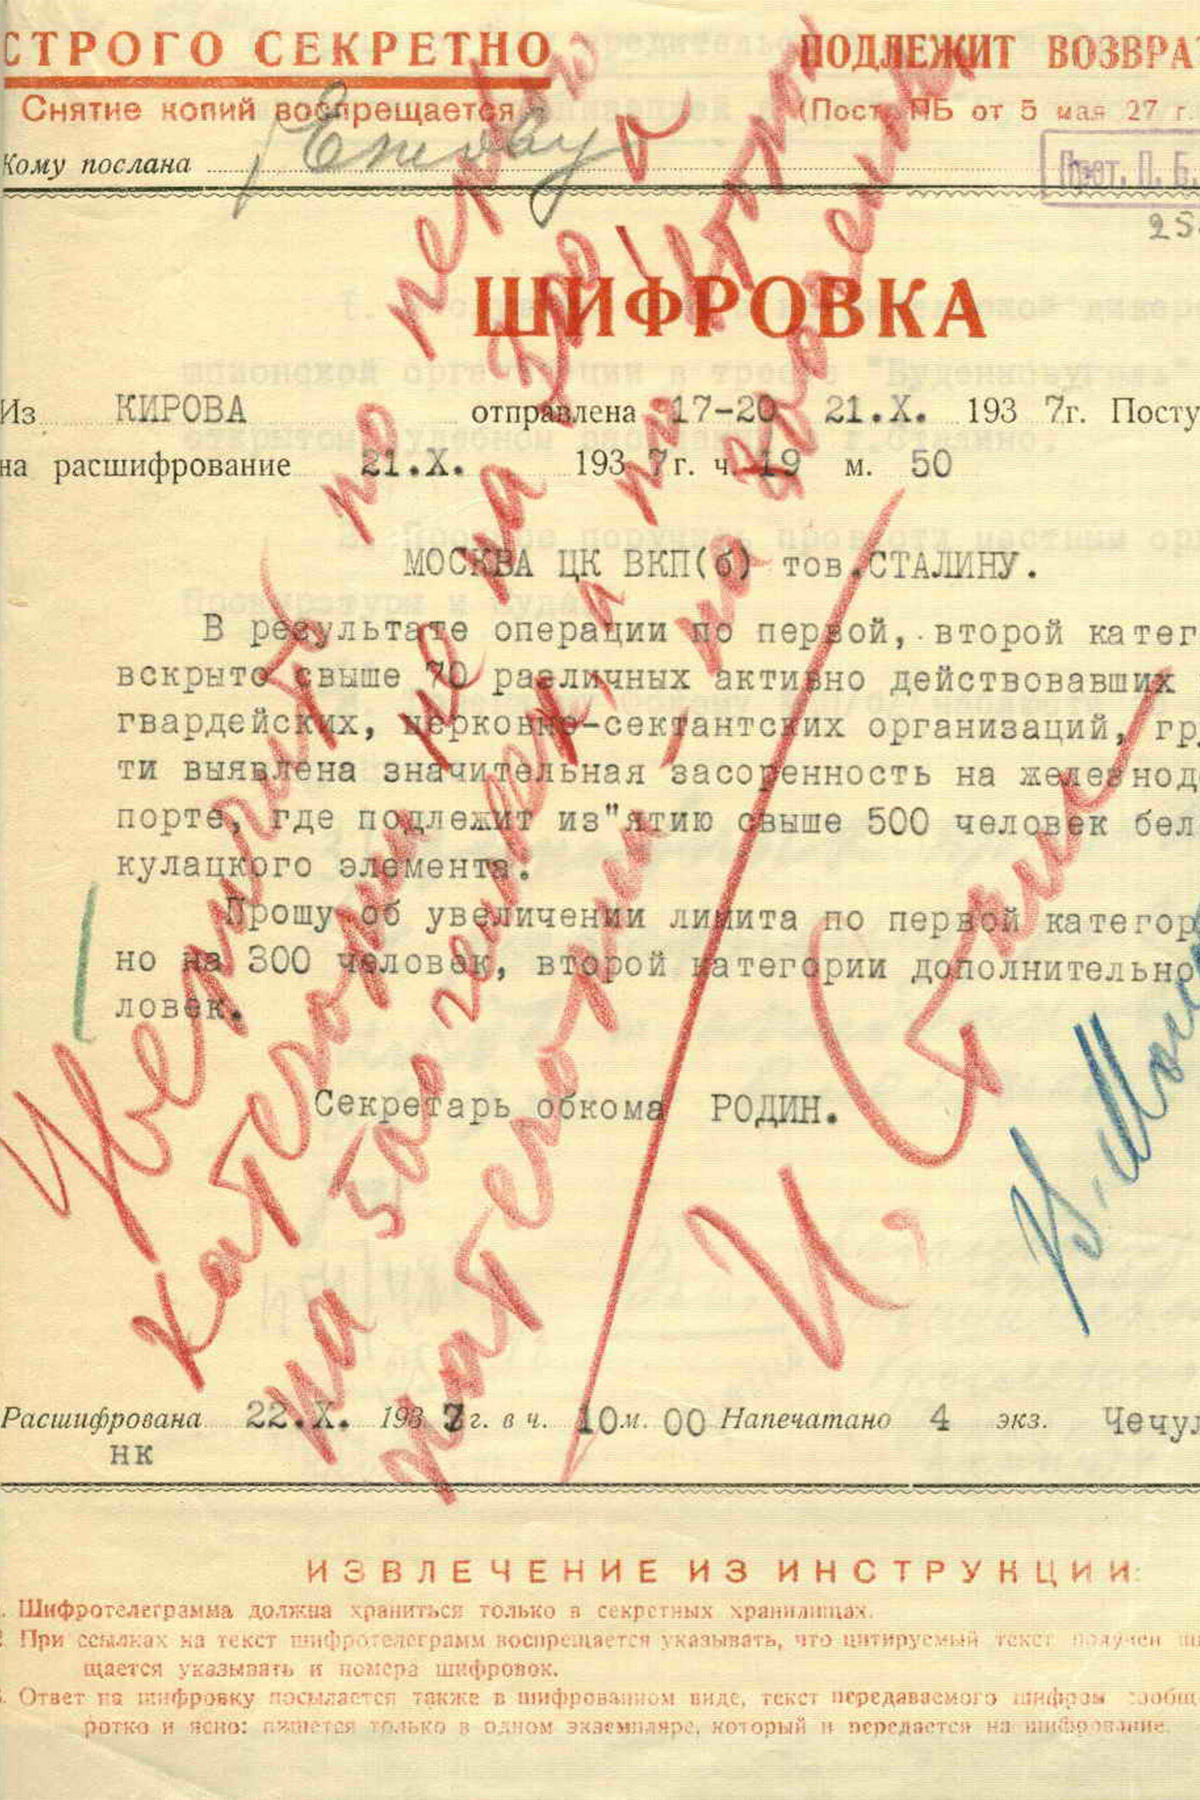 СТРОГО СЕКРЕТНО
ПОДЛЕЖИТ ВОЗВРАТ
Снятие копий воспрещается
(Пост. ПБ от 5 мая 27 г.
Кому послана Ежову
Прот. П. Б.
ШИФРОВКА
Из КИРОВА отправлена 17-20 21.X. 1937г. Посту
на расшифрование 21.X. 1937г. ч. 19 м. 50
МОСКВА ЦК ВКП(б) тов.СТАЛИНУ.
В результате операции по первой, второй катег
вскрыто свыше 70 различных активно действовавших
гвардейских, церковно-сектантских организаций, гру
ти выявлена значительная засоренность на железнодо
порте, где подлежит из"ятию свыше 500 человек бел
кулацкого элемента.
Прошу об увеличении лимита по первой категор
но на 300 человек, второй категории дополнительно
ловек.
Секретарь обкома РОДИН.
Увеличить по первой
категории не на 300, а
на 500 человек, а по второй
категории – на 800 человек
И. Сталин
Расшифрована 22.X. 1937г. в ч. 10 м. 00 Напечатано 4 экз. Чечул
НК
ИЗВЛЕЧЕНИЕ ИЗ ИНСТРУКЦИИ:
Шифротелеграмма должна храниться только в секретных хранилищах.
При ссылках на текст шифротелеграмм воспрещается указывать, что цитируемый текст получен ши
щается указывать и номера шифровок.
Ответ на шифровку посылается также в шифрованном виде, текст передаваемого шифром сообщ
ротко и ясно: пишется только в одном экземпляре, который и передается на шифрование.